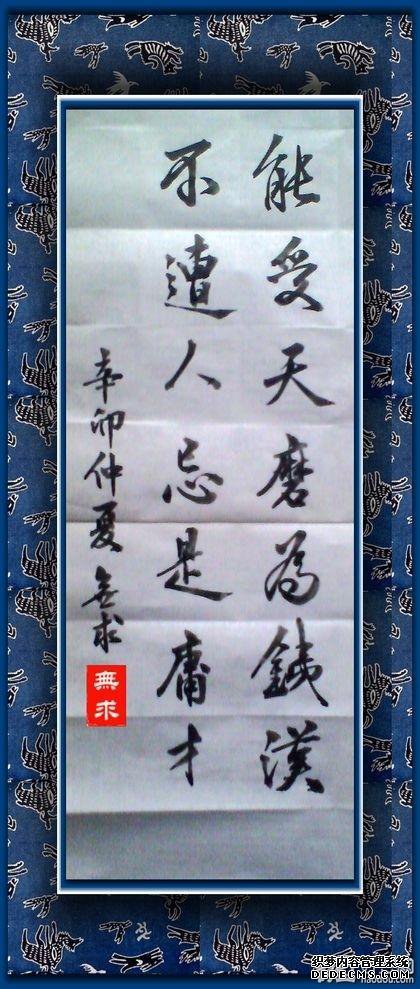 能受天磨為鐵漢
不遭人忌是庸才
辛卯仲夏無求
無求
织梦内容管理系统
DEDECMS.COM